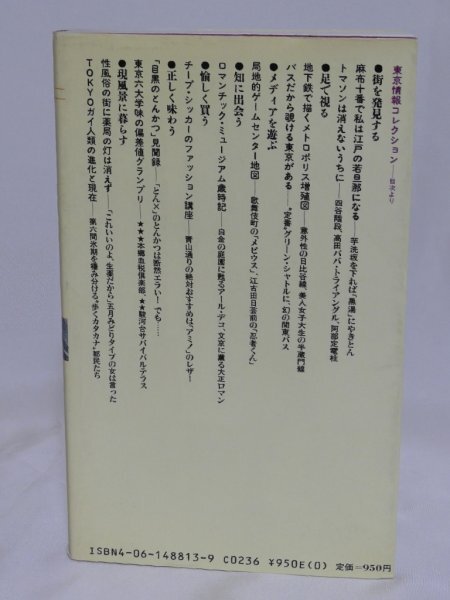 東京情報コレクション──目次より
●街を発見する
麻布十番で私は江戸の若旦那になる──芋洗坂を下れば、「黒湯」にやきとん
トマソンは消えないうちに──四谷階段、高田ババ・トライアングル、阿部定電柱
●足で視る
地下鉄で描くメトロポリス増殖図──意外性の日比谷線、美人女子大生の半蔵門線
バスだから覗ける東京がある──"定番"グリーン・シャトルに、幻の関東バス
●メディアを遊ぶ
局地的ゲームセンター地図──歌舞伎町の「メビウス」、江古田日芸前の「忍者くん」
●知に出会う
ロマンチック・ミュージアム歳時記──白金の庭園に甦るアール・デコ、文京に薫る大正ロマン
●愉しく買う
チープ・シッカーのファッション講座──青山通りの絶対おすすめは、「アミノ」のレザー
●正しく味わう
「目黒のとんかつ」見聞録──「とん×」のとんかつは断然エラい! でも……
東京六大学味の偏差値グランプリ──★★★本郷血税倶楽部、★★駿河台サバイバルテラス
●現風景に暮らす
性風俗の街に薬局の灯は消えず──「これいいのよ、生薬だから」五月みどりタイプの女は言った
TOKYOガイ人類の進化と現在──第六間氷期を棲み分ける、"歩くカタカナ"都民たち
ISBN4-06-148813-9 C0236 ¥950E(0) 定価=950円